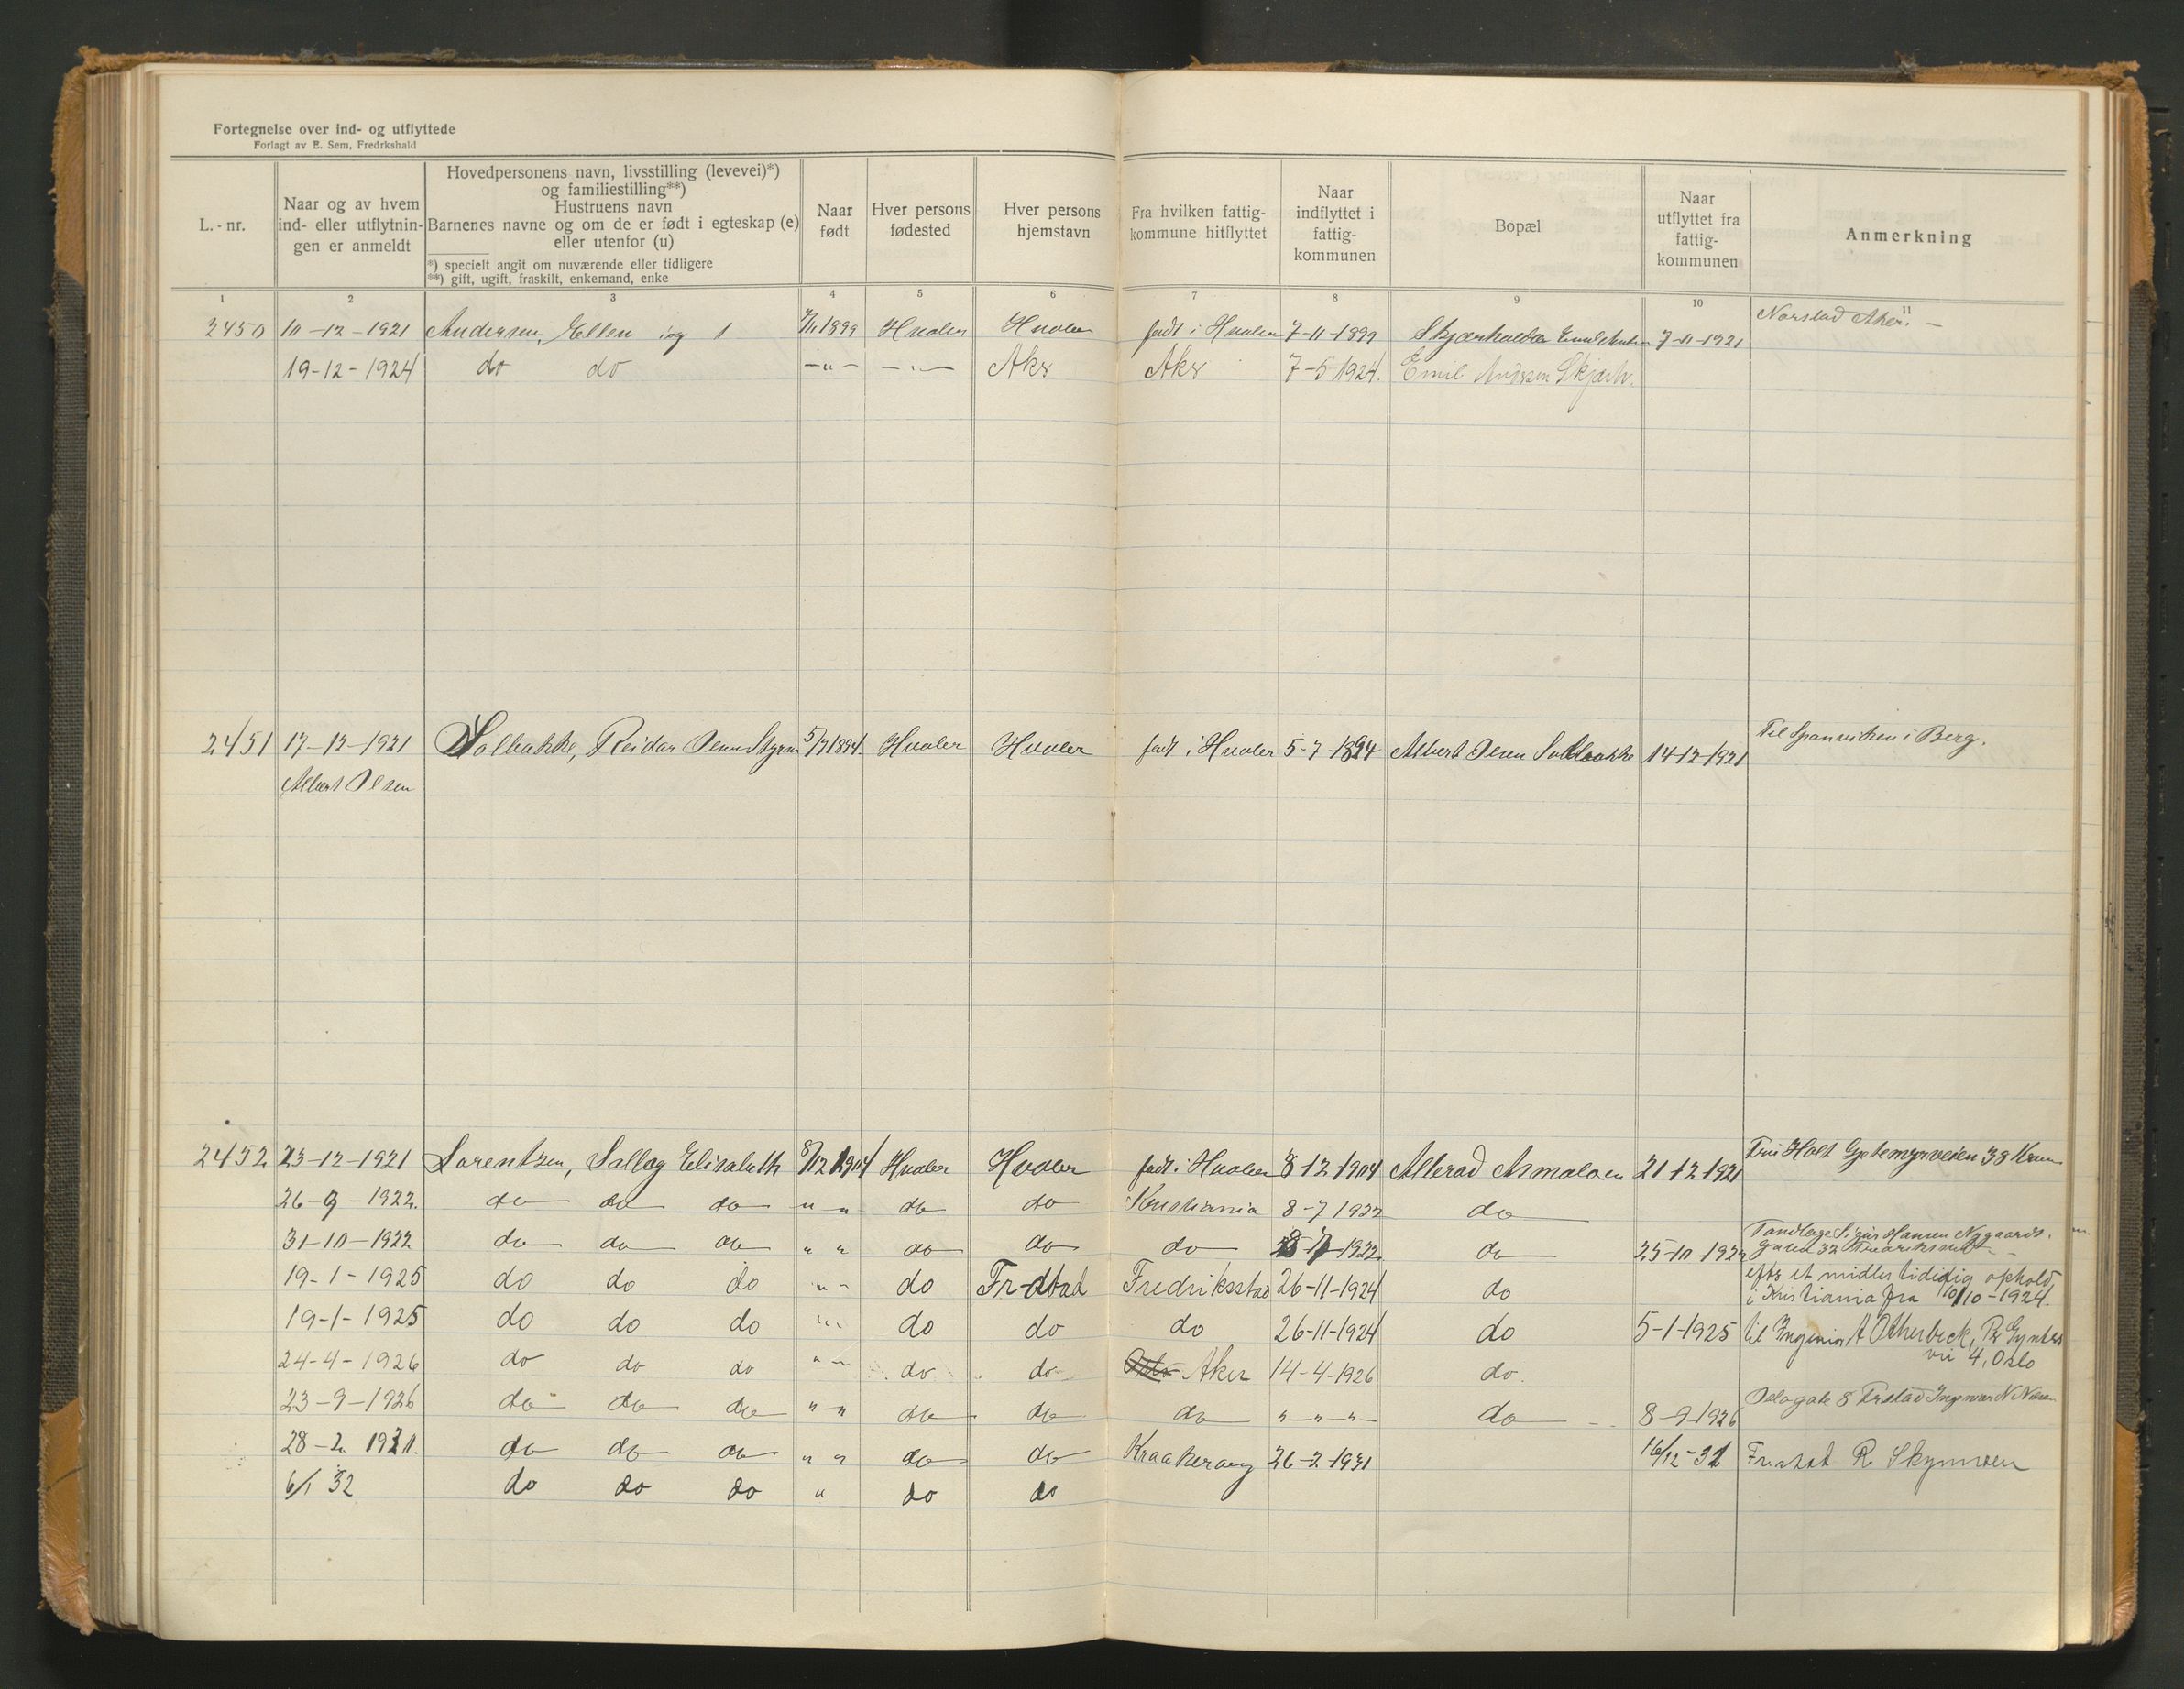 Fortegnelse over ind- og utflyttede
Forlagt av E. Sem, Fredrkshald
L. - nr.
Naar og av hvem ind- eller utflytnin- gen er anmeldt
Hovedpersonens navn, livsstilling (levevei)*)
og familiestilling**)
Hustruens navn
Barnenes navne og om de er født i egteskap (e)
eller utenfor (u)
*) specielt angit om nuværende eller tidligere
**) gift, ugift, fraskilt, enkemand, enke
Naar født
Hver persons fødested
Hver persons hjemstavn
Fra hvilken fattig- kommune hitflyttet
Naar indflyttet i fattig- kommunen
Bopæl
Naar utflyttet fra fattig- kommunen
Anmerkning
1 2 3 4 5 6 7 8 9 10 11
2450 10-12-1921 Andersen, Ellen 7/11 1899 Hvaler Hvaler født i Hvaler 7-11-1899 7-11-1921 Norstad Aker.
19-12-1924 do do -"- -"- Aker Aker 7-5-1924. Emil Andersen Skjærh.
2451 17-12-1921 Solbakke, Reidar Olsen 5/7 1894. Hvaler Hvaler født i Hvaler 5-7-1894 Albert Olsen Solbakke 14-12-1921 Til Sponviken i Berg.
Albert Olsen
2452 23-12-1921 Lorentzen, Solleg Elisabeth 8/12 1904 Hvaler Hvaler født i Hvaler 8-12-1904 Allerød Asmaløen 21-12-1921 Fru Holt 38
26-9-1922. do do do " " do do Kristiania 8-7-1922 do
31-10-1922 do do do " " do do do 8-7-1922. do 25-10-1922 Tandlæge Hansen Nygaards-
gaten 32
19-1-1925 do do do " " do Fr-stad Fredriksstad 26-11-1924 do efter et midlertidig ophold
i Kristiania fra 10/10-1924.
19-1-1925 do do do " " do do do 26-11-1924 do 5-1-1925 til Ingeniør A Otherbeck, Pr Gyntes
vei 4, Oslo
24-4-1926 do do do " " do do Oslo Aker 14-4-1926 do.
23-9-1926 do do do " " do do do "-"-" do 8-9-1926 8 Frstad
28-2-1931. do do do " " do do Kraakerøy 26-2-1931 16/12-31 Frstad R Skynnsen
6/1 32 do do do " do do